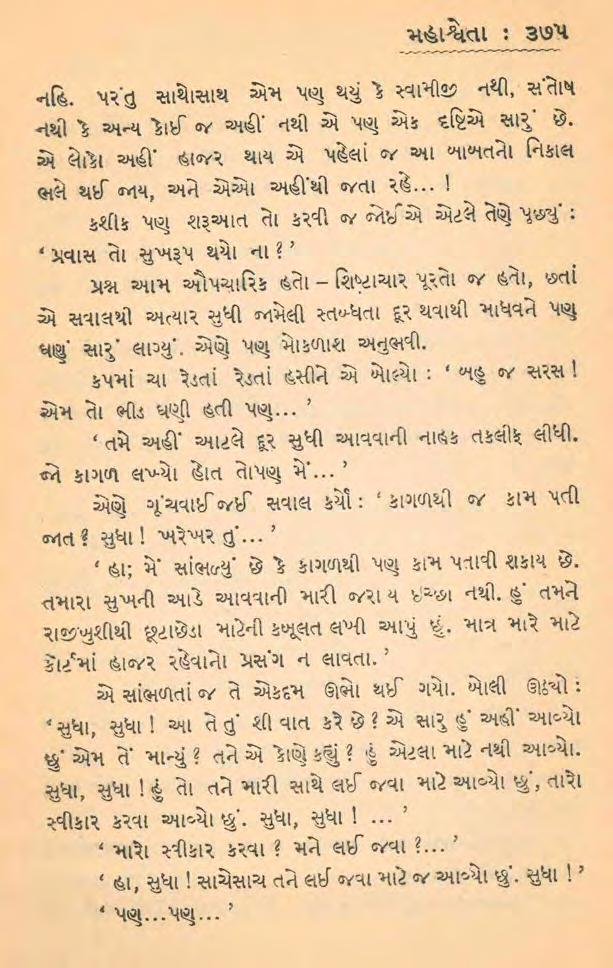 મહાશ્વેતા : ૩૭૫
નહિ. પરંતુ સાથોસાથ એમ પણ થયું કે સ્વામીજી નથી, સંતોષ
નથી કે અન્ય કોઈ જ અહીં નથી એ પણ એક દૃષ્ટિએ સારું છે.
એ લોકો અહીં હાજર થાય એ પહેલાં જ આ બાબતનો નિકાલ
ભલે થઈ જાય, અને એઓ અહીંથી જતા રહે... !
કશીક પણ શરૂઆત તો કરવી જ જોઈએ એટલે તેણે પૂછયું :
‘ પ્રવાસ તો સુખરૂપ થયો ના ? ’
પ્રશ્ન આમ ઔપચારિક હતો – શિષ્ટાચાર પૂરતો જ હતો, છતાં
એ સવાલથી અત્યાર સુધી જામેલી સ્તબ્ધતા દૂર થવાથી માધવને પણ
ઘણું સારું લાગ્યું. એણે પણ મોકળાશ અનુભવી.
કપમાં ચા રેડતાં રેડતાં હસીને એ બોલ્યો : ‘ બહુ જ સરસ !
એમ તો ભીડ ઘણી હતી પણ... ’
‘ તમે અહીં આટલે દૂર સુધી આવવાની નાહક તકલીફ લીધી.
જો કાગળ લખ્યો હોત તોપણ મેં... ’
એણે ગૂંચવાઈ જઈ સવાલ કર્યો : ‘ કાગળથી જ કામ પતી
જાત ? સુધા ! ખરેખર તું... ’
‘ હા; મેં સાંભળ્યું છે કે કાગળથી પણ કામ પતાવી શકાય છે.
તમારા સુખની આડે આવવાની મારી જરાય ઇચ્છા નથી. હું તમને
રાજીખુશીથી છૂટાછેડા માટેની કબૂલત લખી આપું છું. માત્ર મારે માટે
કોર્ટમાં હાજર રહેવાનો પ્રસંગ ન લાવતા. ’
એ સાંભળતાં જ તે એકદમ ઊભો થઈ ગયો. બોલી ઊઠ્યો :
‘ સુધા, સુધા ! આ તે તું શી વાત કરે છે ? એ સારુ હું અહીં આવ્યો
છું એમ તેં માન્યું ? તને એ કોણે કહ્યું ? હું એટલા માટે નથી આવ્યો.
સુધા, સુધા ! હું તો તને મારી સાથે લઈ જવા માટે આવ્યો છું, તારો
સ્વીકાર કરવા આવ્યો છું. સુધા, સુધા ! ... ’
‘ મારો સ્વીકાર કરવા ? મને લઈ જવા ?... ’
‘ હા, સુધા ! સાચેસાચ તને લઈ જવા માટે જ આવ્યો છું. સુધા ! ’
‘ પણ...પણ... ’